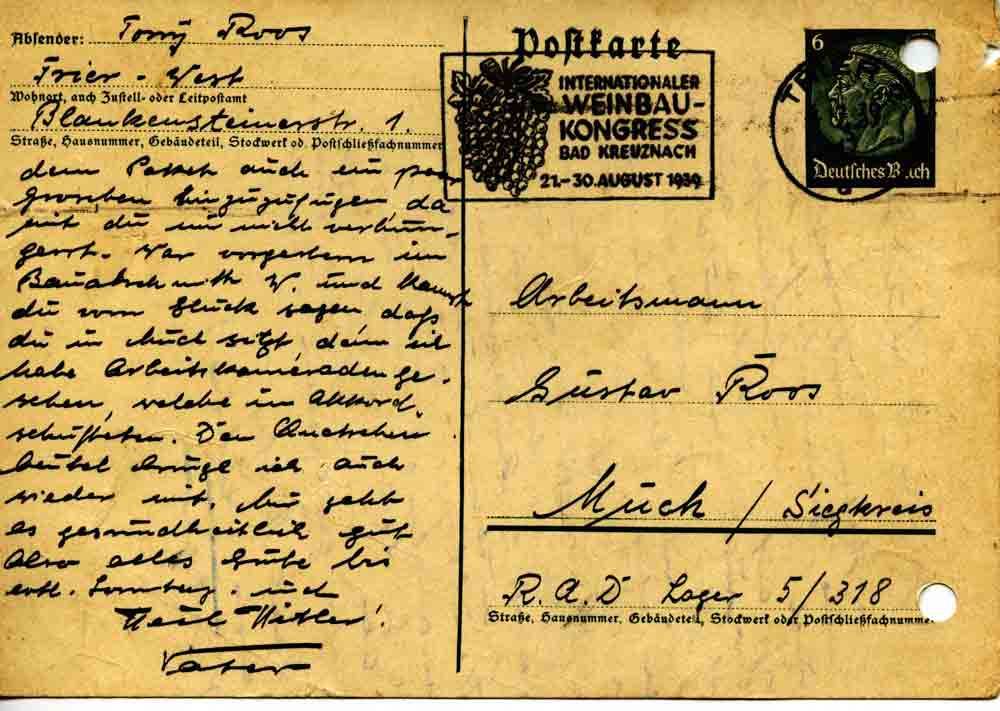 Absender: Tony Roos
Trier - West
Wohnort, auch Zustell- oder Leitpostamt
Blankensteinerstr. 1.
Straße, Hausnummer, Gebäudeteil, Stockwerk od. Postschließfachnummer
dem Paket auch ein paar
Groschen hinzuzufügen, da
mit du mir nicht verhun-
gerst. War vorgestern im
Bauabschnitt W. und kannst
du von Glück sagen daß
du in Much sitzt, denn ich
habe Arbeitskameraden ge-
sehen, welche im Akkord
schufteten. Den
beutel bringe ich auch
wieder mit. Mir geht
es gesundheitlich gut
Also alles Gute bis
evtl. Sonntag. und
Heil Hitler!
Vater
Postkarte
INTERNATIONALER
WEINBAU-
KONGRESS
BAD KREUZNACH
21.-30. AUGUST 1939
6
Deutsches R..ch
Arbeitsmann
Gustav Roos
Much / Siegkreis
R.A.D Lager 5/318
Straße, Hausnummer, Gebäudeteil, Stockwerk oder Postschließfachnumme